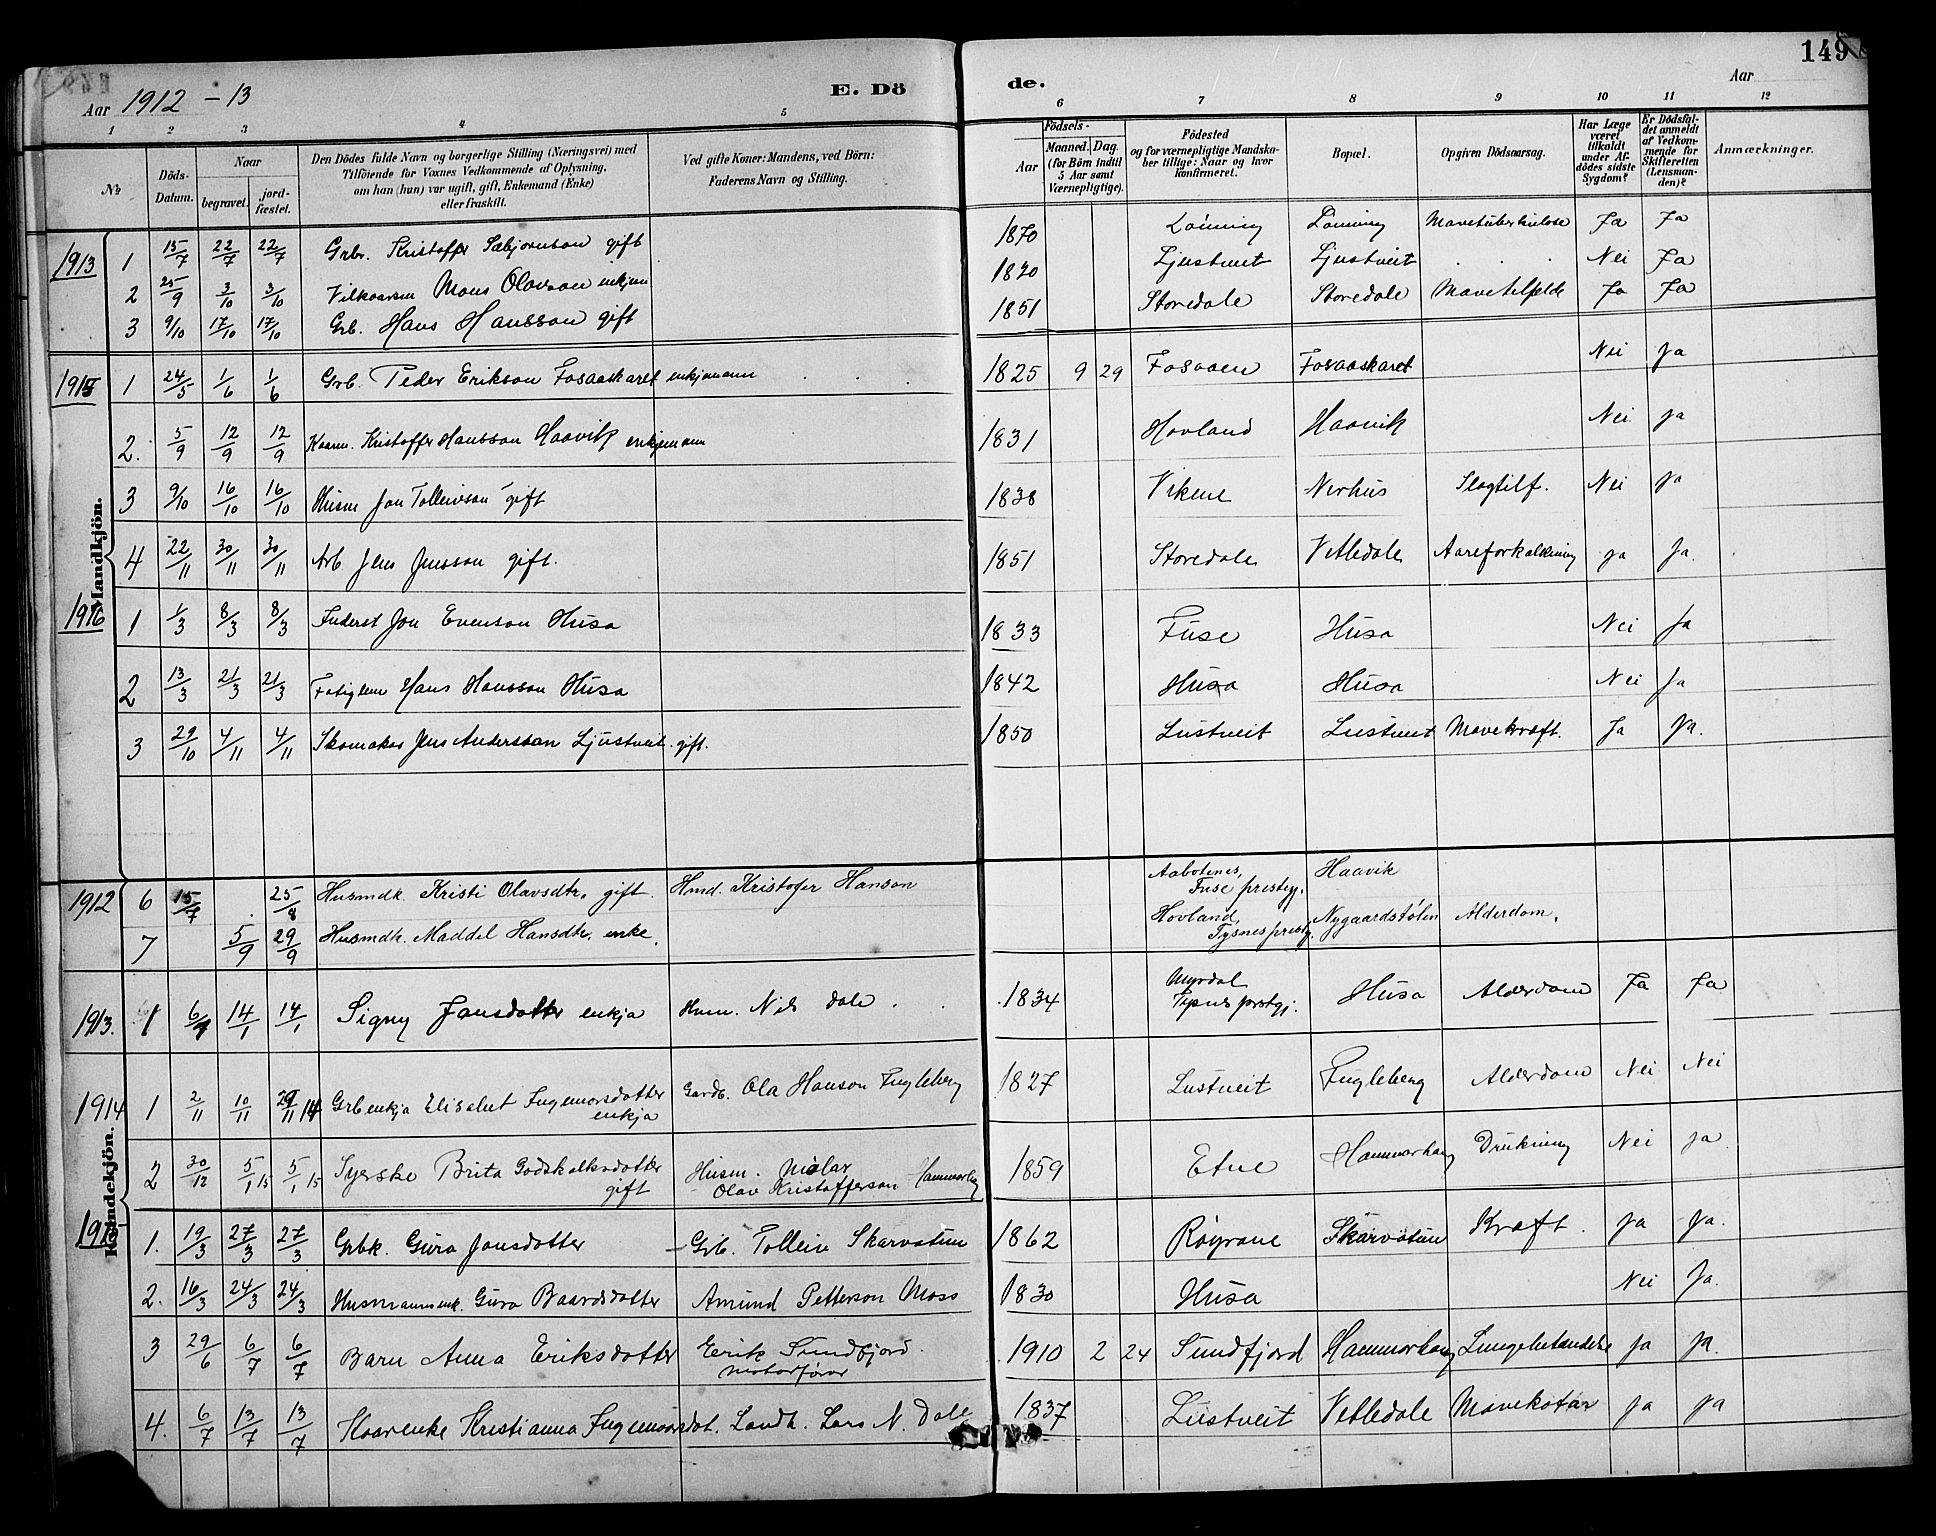 149
Aar 1912 - 13
E. Dö de.
Aar
1 2 3 4 5 6 7 8 9 10 11 12
No
Döds-Datum.
Naar
begravet.
jord-fæstet.
Den Dödes fulde Navn og borgerlige Stilling (Næringsvei) med
Tilföiende for Voxnes Vedkommende af Oplysning,
om han (hun) var ugift, gift, Enkemand (Enke)
eller fraskilt.
Ved gifte Koner: Mandens, ved Börn:
Faderens Navn og Stilling.
Födsels-
Aar
Maaned. Dag.
(for Börn indtil
5 Aar samt
Værnepligtige).
Födested
og for værnepligtige Mandska-
ber tillige: Naar og hvor
konfirmeret.
Bopæl.
Opgiven Dödsaarsag.
Har Læge
været
tilkaldt
under Af-
dödes sidste
Sygdom?
Er Dödsfal-
det anmeldt
af Vedkom-
mende for
Skifteretten
(Lensman-
den)?
Anmærkninger.
Mandkjön.
1913 1 15/7 22/7 22/7 Grbr. Kristoffer Sæbjørnson gift 1870 Lønning Lønning Mavetuberkulose Ja Ja
2 25/9 3/10 3/10 Vilkaarsm Mons Olavson enkjem 1820 Ljustveit Ljustveit . . . Nei Ja
3 9/10 17/10 17/10 Grb. Hans Hansson gift 1851 Storedale Storedale Mavetilfelde Ja Ja
1915 1 24/5 1/6 1/6 Grb. Peder Erikson Fosaaskaret enkjemann . . . 1825 9 29 Fosaaen Fosaaskaret Nei Ja
2. 5/9 12/9 12/9 Kaarm. Kristoffer Hansson Haavik enkjemann 1831 Hovland Haavik Nei Ja
3 9/10 16/10 16/10 Husm Jon Tolleivson gift 1838 Vikene Nerhus Slagtilf. Nei Ja
4 22/11 30/11 30/11 Arb Jens Jensson gift. 1851 Storedale Vetledale Aareforkalkning ja Ja.
1916 1 1/3 8/3 8/3 Inderst Jon Evenson Husa 1833 Fuse Husa Nei Ja
2 13/3 21/3 21/3 Fatiglem Hans Hansson Husa 1842 Husa Husa Nei Ja
3 29/10 4/11 4/11 Skomaker Jens Andersson Ljustveit. gift. 1850 Lustveit Lustveit Mavekræft. Ja Ja.
Kvindekjön.
1912 6 15/7 . 25/8 Husmdk. Kristi Olavsdtr. gift. Hmd. Kristofer Hanson Aabotenes, Fuse prestegj. Haavik
7 5/9 29/9 Husmdk. Maddel Hansdtr. enke. Hovland, Tysnes prestgj. Nygaardstølen Alderdom.
1913. 1 6/1 14/1 14/1 Signy Jonsdotter enkja Husm. Nils Dale . . 1834 Myrdal Tysnes prestgj. Husa Alderdom Ja Ja
1914 1 2/11 10/11 29/11 14 Grbenkja Elisabet Ingemorsdotter enkja Gardb. Ola Hanson Fugleberg 1827 Lustveit Fugleberg Alderdom Nei Nei
2 30/12 5/1 15 5/1 15 Syerske Brita Godskalksdotter gift Husm. Malar Olav Kristofferson Hammarhaug 1859 Etne Hammarhaug Drukning Nei Ja
1915 1. 19/3 27/3 27/3 Grbk. Gura Jonsdotter Grb. Tolleiv Skarvatun 1862 Røyrane Skarvatun Kræft. ja Ja.
2. 16/3 24/3 24/3 Husmannsenk. Gura Baardsdotter Amund Petterson Moss 1830 Husa Nei Ja.
3 29/6 6/7 6/7 Barn Anna Eriksdotter Erik Sundfjord. motorfører 1910 2 24 Sundfjord Hammarhaug Lungebetændelse ja Ja.
4. 6/7 13/7 13/7 Kaarenke Kristianna Ingemorsdot. Landh. Lars N. Dale 1837 Lustveit Vetledale Mavekatar ja ja